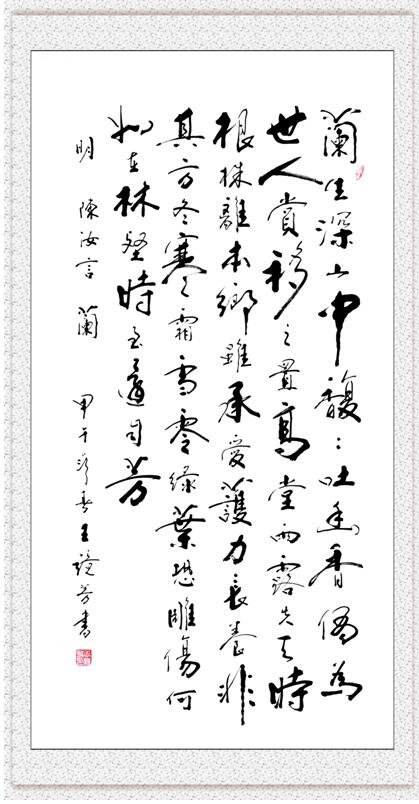 蘭生深山中馥〻吐幽香偶為
世人賞移之置高堂雨露失天時
根株離本鄉雖承愛護力長養非
其方冬寒霜雪零綠葉恐雕傷何
如在林壑時至還自芳
明 陳汝言 蘭 甲午新春王 芳書